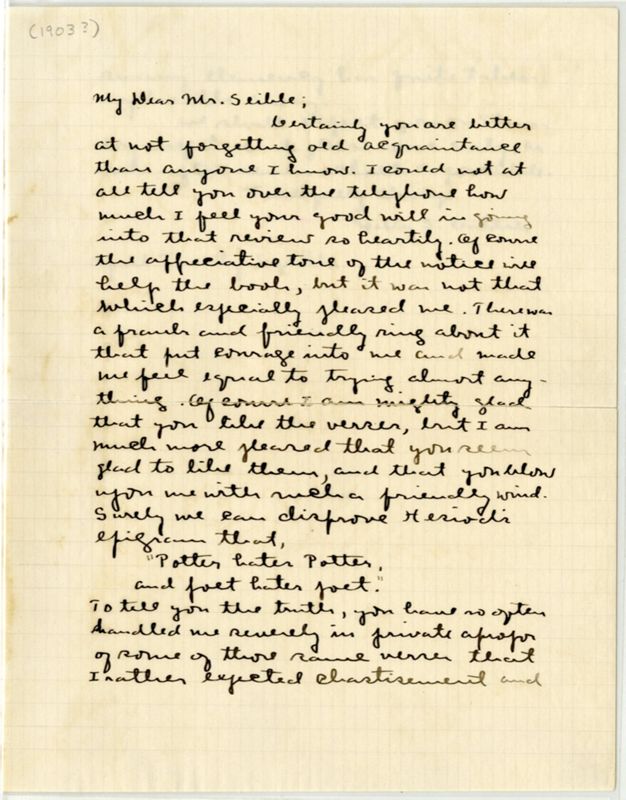 (1903?)
My Dear Mr. Seible;
Certainly you are better
at not forgetting old acquaintance
than anyone I know. I could not at
all tell you over the telephone how
much I feel your good will in going
into that review so heartily. Of course
the appreciative tone of the notice will
help the book, but it was not that
which especially pleased me. There was
a frank and friendly ring about it
that put courage into me and made
me feel equal to trying almost any-
thing. Of course I am mighty glad
that you like the verses, but I am
much more pleased that you seem
glad to like them, and that you blow
upon me with such a friendly wind.
Surely we can disprove Hesiod's
epigram that,
"Potter hates Potter,
and poet hates poet."
To tell you the truth, you have so often
handled me severely in private apropos
of some of those same verses that
I rather expected chastisement and